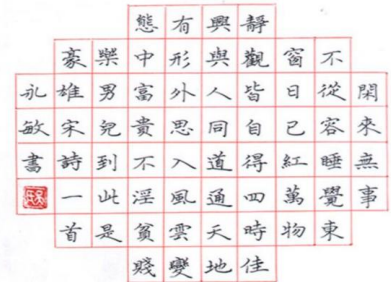 閑來無事
不從容睡覺東
窗日已紅萬物
靜觀皆自得四時佳
興與人同道通天地
有形外思入風雲變
態中富貴不淫貧賤
樂男兒到此是
豪雄宋詩一首
永敏書